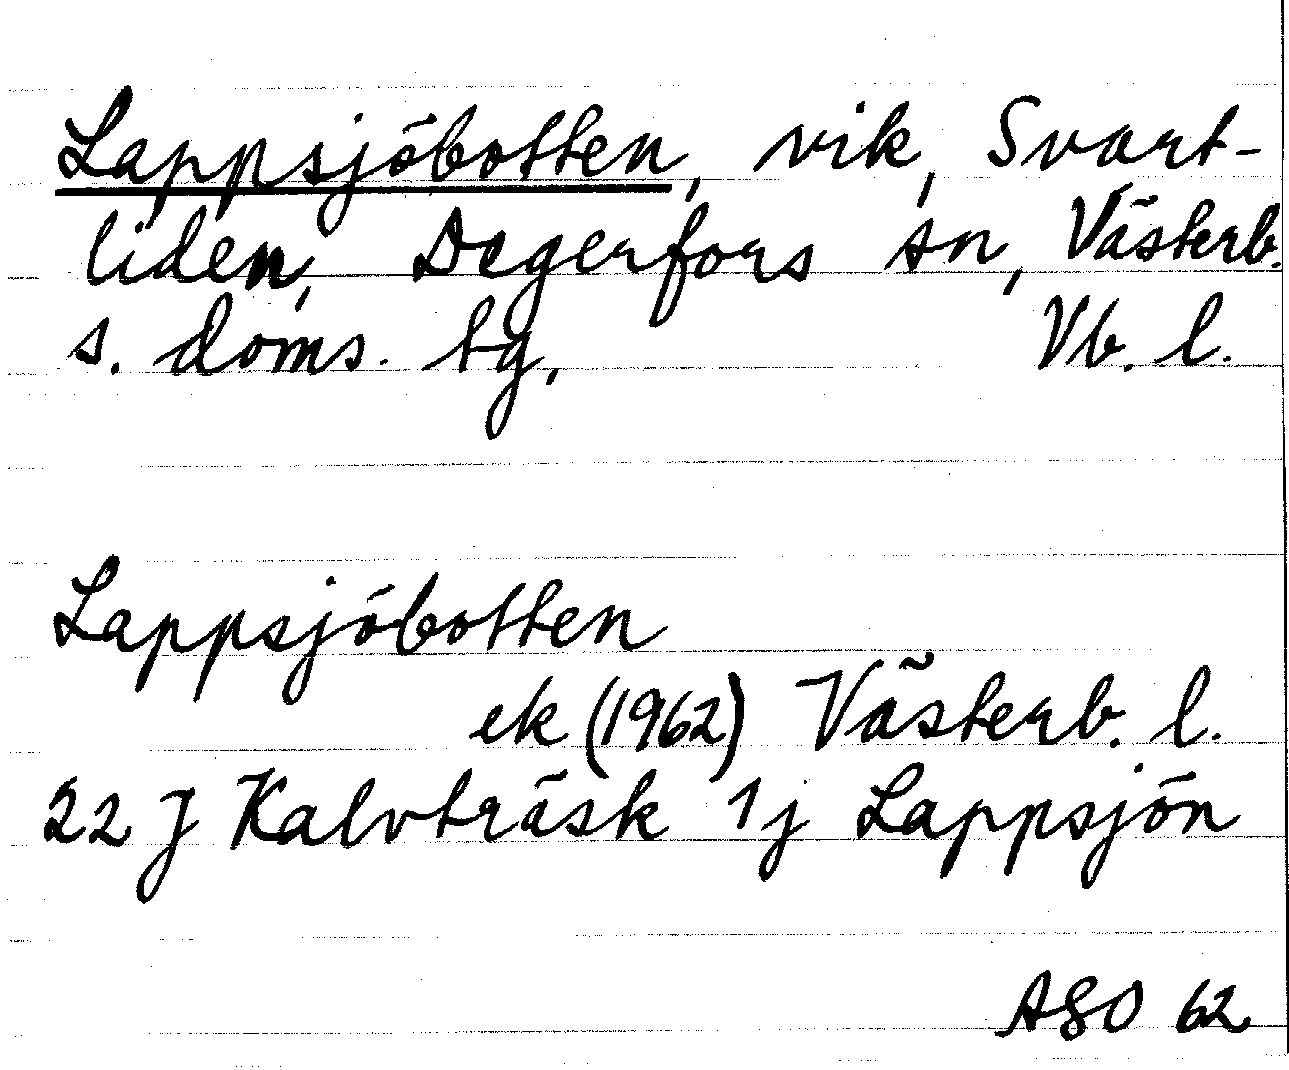 Lappsjöbotten, vik, Svart-
liden, Degerfors sn, Västerb.
s. doms. tg, Vb. l.
Lappsjöbotten
ek (1962) Västerb. l.
22 J Kalvträsk 1j Lappsjön
ASO 62